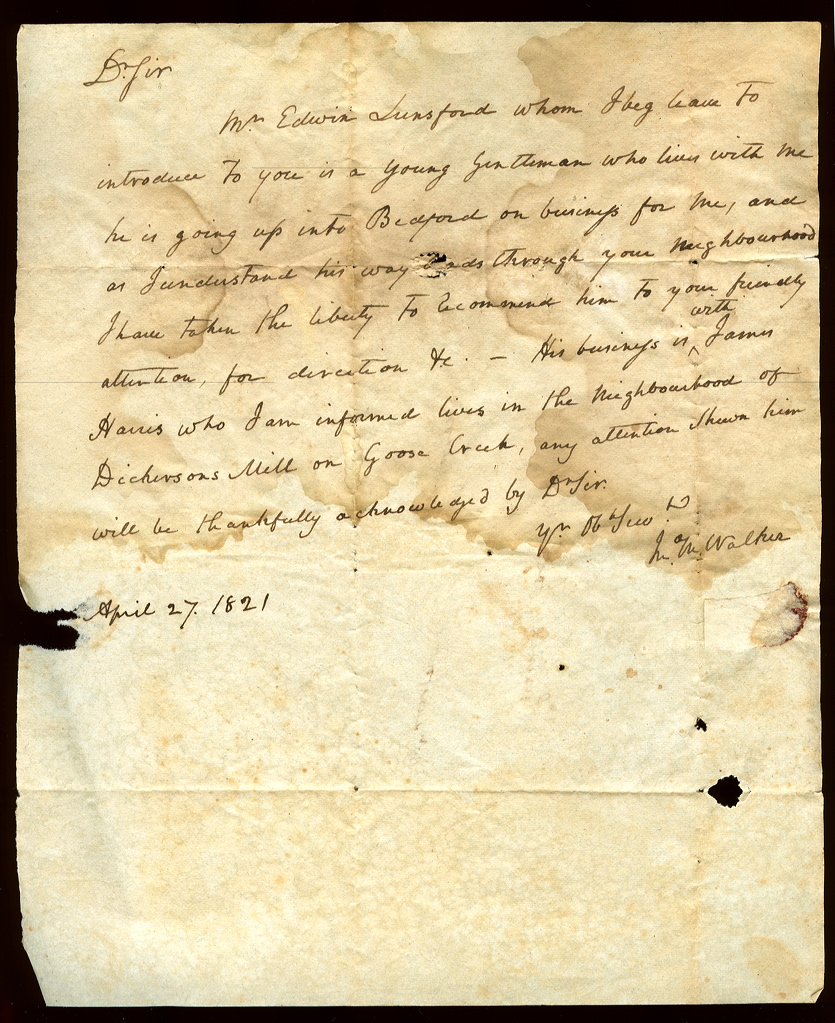 Dr Sir
Mr Edwin Lunsford whom I beg leave to
introduce to you is a young Gentleman who lives with me
he is going up into Bedford on business for me, and
as I understand his way leads through your Neighbourhood
I have taken the liberty to recommend him to your friendly
attention, for direction &c. — His business is with James
Harris who I am informed lives in the Neighbourhood of
Dickersons Mill on Goose Creek, any attention shewn him
will be thankfully acknowledged by Dr Sir.
Yr Obt Servt
Jas M. Walker
April 27. 1821